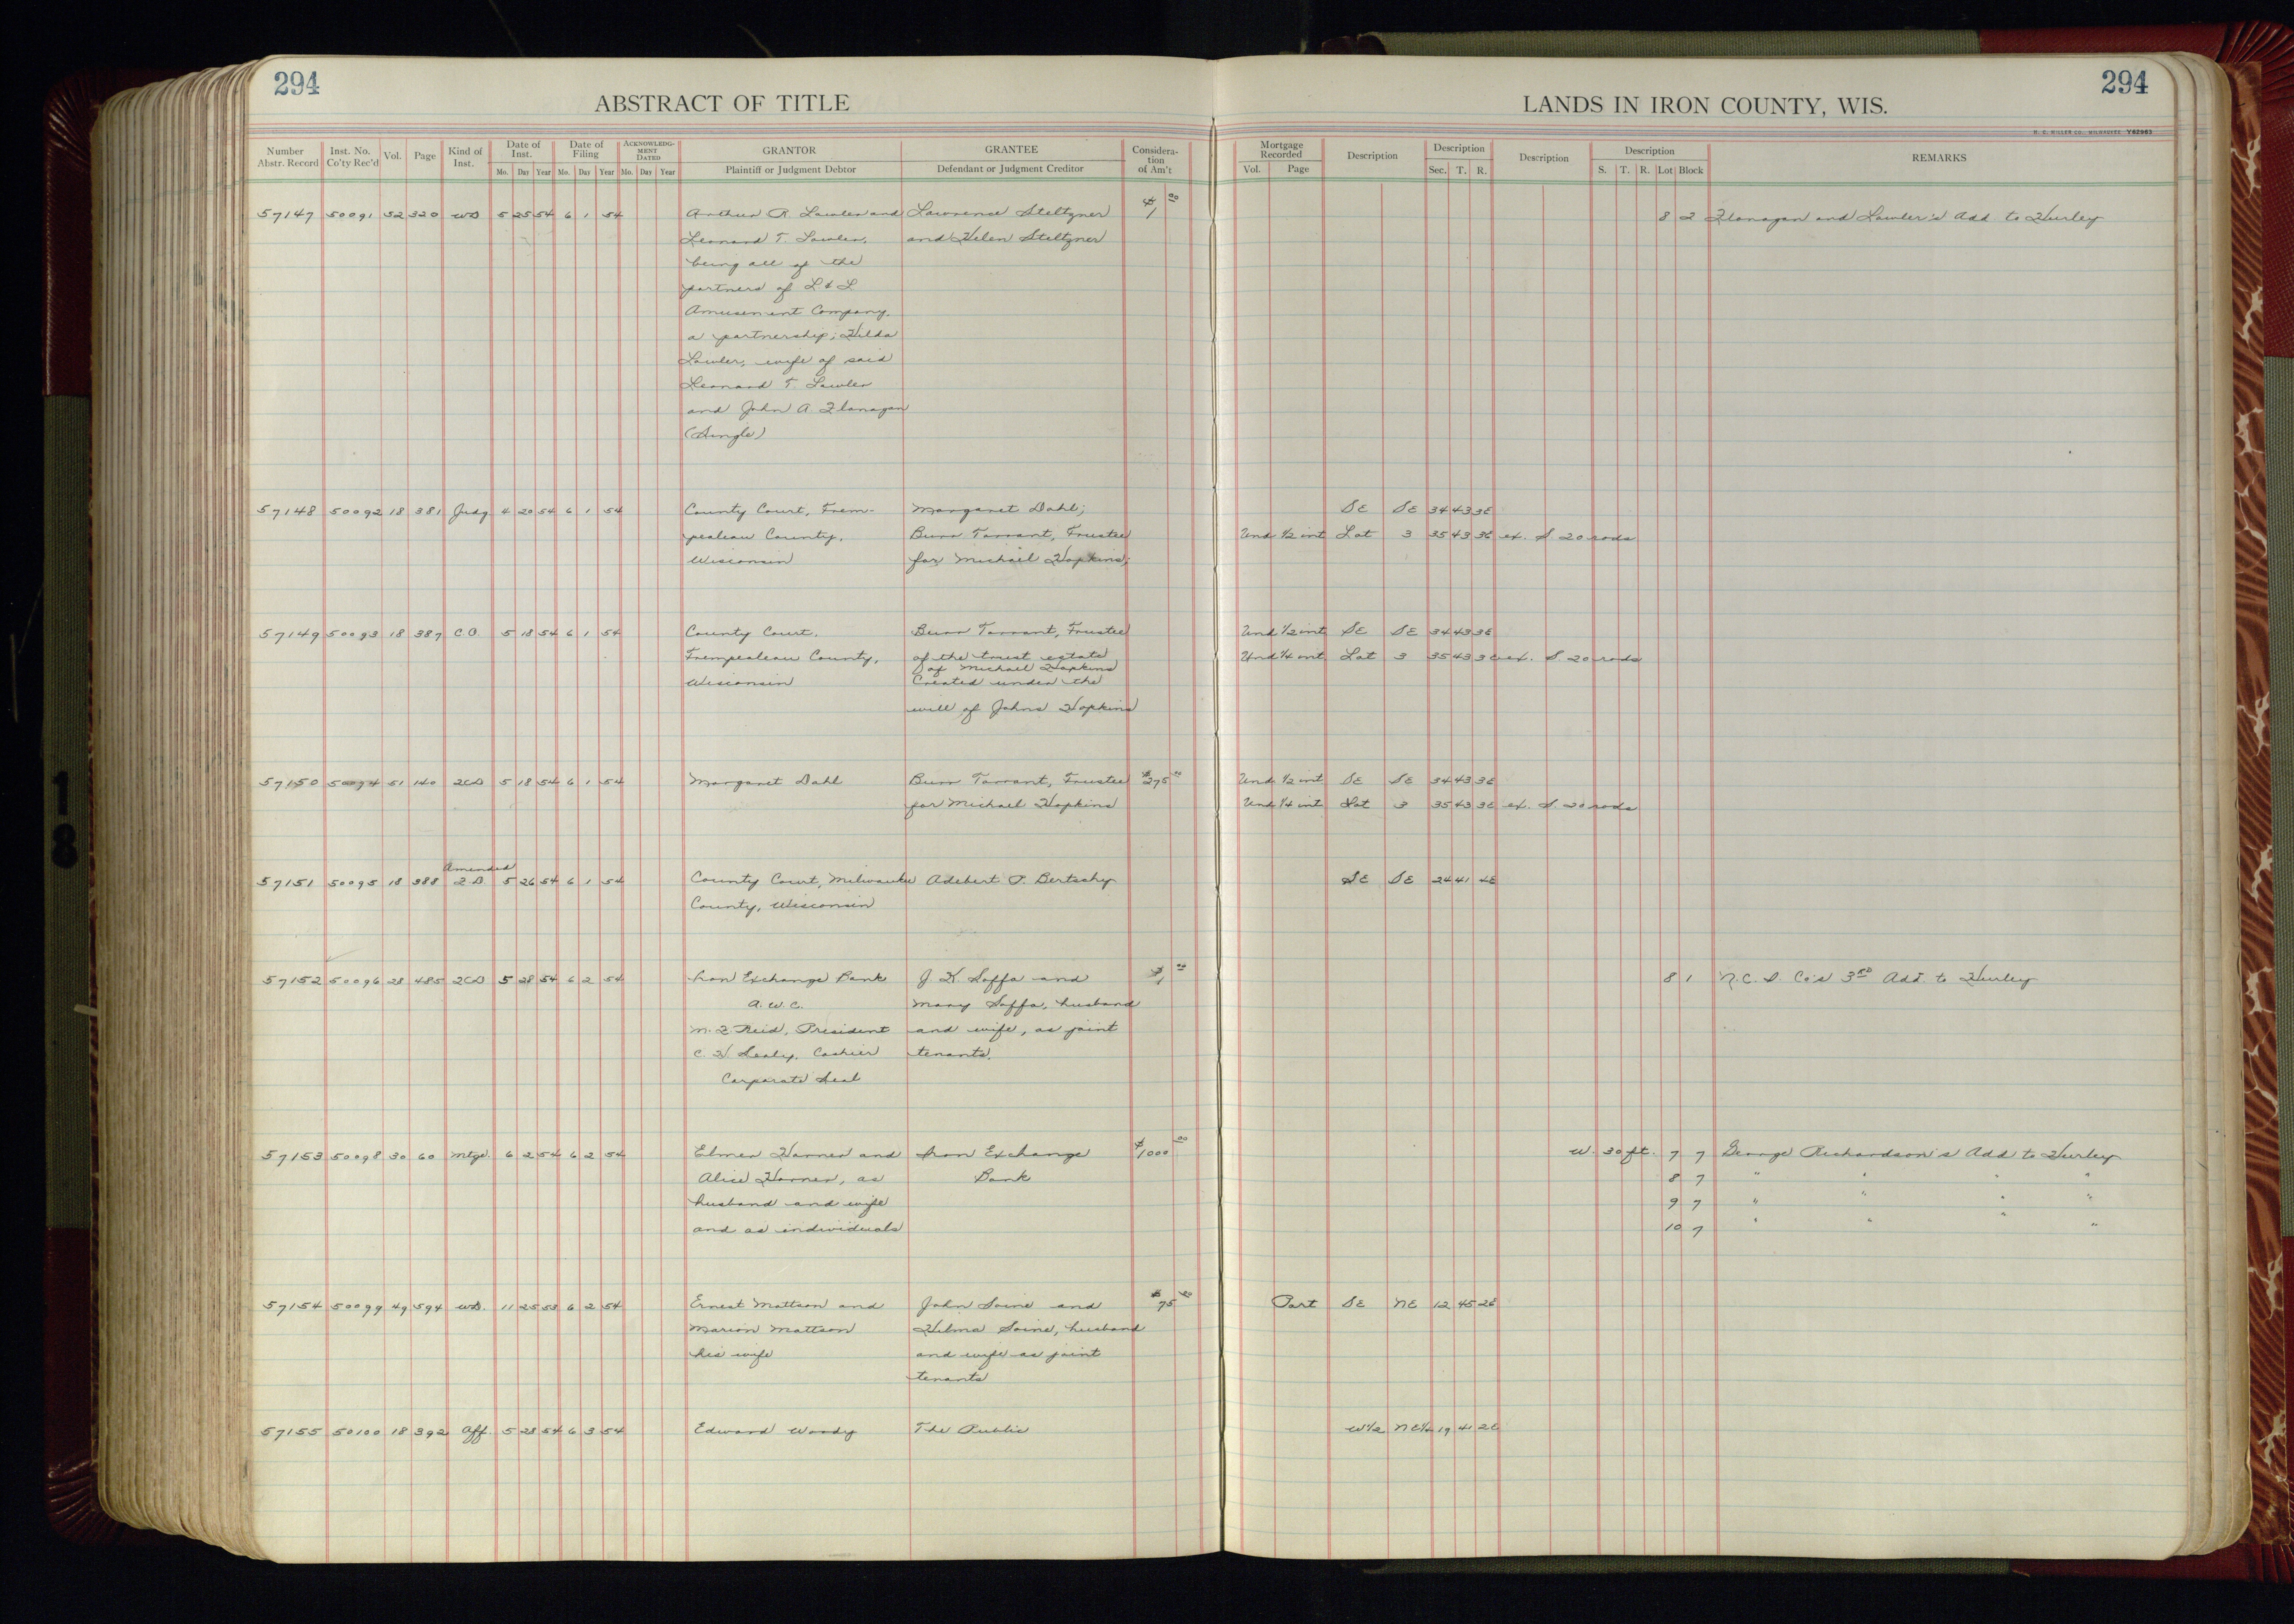 294
294
ABSTRACT OF TITLE
LANDS IN IRON COUNTY, WIS.
H. C. MILLER CO., MILWAUKEE Y62983
Number Abstr. Record Inst. No. Co'ty Rec'd Vol. Page Kind of Inst. Date of Inst. Mo. Day Year Date of Filing Mo. Day Year ACKNOWLEDGMENT DATED Mo. Day Year GRANTOR Plaintiff or Judgment Debtor GRANTEE Defendant or Judgment Creditor Consideration of Am't Mortgage Recorded Vol. Page Description Description Sec. T. R. Description Description S. T. R. Lot Block REMARKS
57147 50091 52 320 WD 5 25 54 6 1 54 Arthur R. Lawler and Lawrence Steltzner $1 00 8 2 Flanagan and Lawler's Add. to Hurley
Leonard T. Lawler, and Helen Steltzner
being all of the
partners of L & L
Amusement Company,
a partnership; Hilda
Lawler, wife of said
Leonard T. Lawler
and John A. Flanagan
(Single)
57148 50092 18 381 Judg 4 20 54 6 1 54 County Court, Trem- Margaret Dahl; SE SE 34 43 3E
pealeau County, Burr Tarrant, Trustee Und 1/2 int Lot 3 35 43 3E ex. S. 20 rods
Wisconsin for Michael Hopkins;
57149 50093 18 387 C.O. 5 18 54 6 1 54 County Court, Burr Tarrant, Trustee Und 1/2 int SE SE 34 43 3E
Trempealeau County, of the trust estate Und 1/4 int Lot 3 35 43 3E ex. S. 20 rods
of Michael Hopkins
Wisconsin Created under the
will of Johns Hopkins
57150 50094 51 140 QCD 5 18 54 6 1 54 Margaret Dahl Burr Tarrant, Trustee $275 00 Und 1/2 int SE SE 34 43 3E
for Michael Hopkins Und 1/4 int Lot 3 35 43 3E ex. S. 20 rods
Amended
57151 50095 18 388 F.D. 5 26 54 6 1 54 County Court, Milwaukee Adebert P. Bertschy SE SE 24 41 4E
County, Wisconsin
57152 50096 28 485 QCD 5 28 54 6 2 54 Iron Exchange Bank J. K. Saffa and $1 00 8 1 N.C.I. Co's 3rd Add. to Hurley
A.W.C. Mary Saffa, husband
M. F. Reid, President and wife, as joint
C. H. Sealy, Cashier tenants.
Corporate Seal
57153 50098 30 60 Mtge. 6 2 54 6 2 54 Elmer Harner and Iron Exchange $1000 00 W. 30 ft. 7 7 George Richardson's Add to Hurley
Alice Harner, as Bank 8 7 " " " "
husband and wife 9 7 " " " "
and as individuals 10 7 " " " "
57154 50099 49 594 WD. 11 25 53 6 2 54 Ernest Mattson and John Soine and $75 00 Part SE NE 12 45 2E
Marion Mattson Hilma Soine, husband
his wife and wife as joint
tenants
57155 50100 18 392 Aff. 5 28 54 6 3 54 Edward Woody The Public W1/2 NE1/4 19 41 2E
18